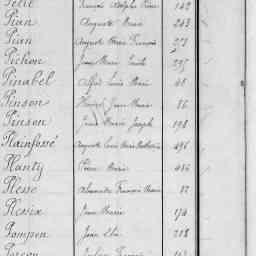 Petit François Adolphe Pierre 142
Pian Auguste Marie 243
Pian Auguste Marie François 273
Pichon Jean Marie Emile 295
Pinabel Alfred Louis Marie 48
Pinson Jean Marie 86
Pinson Marie Joseph 198
Plainfossé Auguste Louis Marie 496
Planty Pierre Marie 436
Plesse Alexandre François Marie 82
Plessix Jean Marie 174
Pompon Jean 218